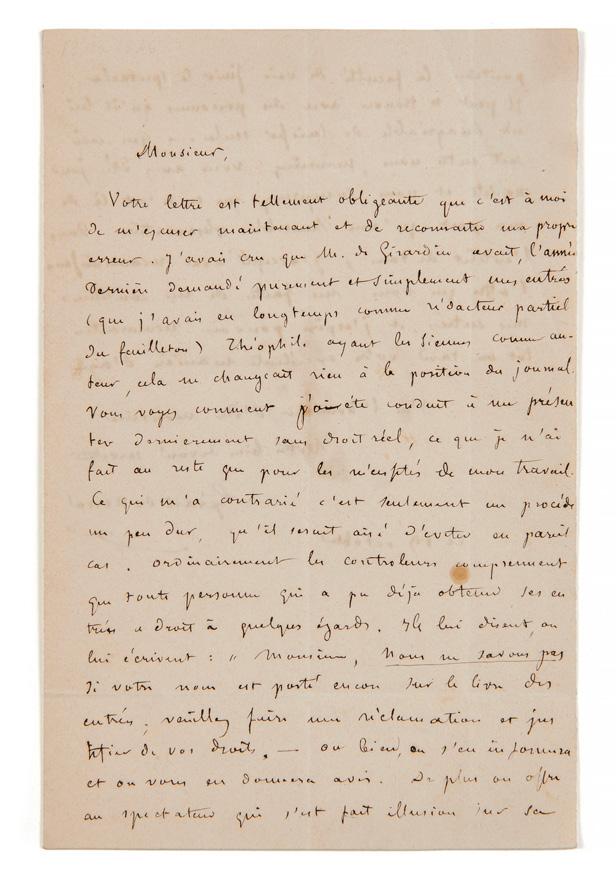 Monsieur,
Votre lettre est tellement obligeante que c'est à moi
de m'excuser maintenant et de reconnaitre ma propre
erreur. J'avais cru que M. de Girardin avait, l'année
dernière demandé purement et simplement mes entrées
(que j'avais eu longtemps comme rédacteur partiel
du feuilleton) Théophile ayant les siennes comme au-
teur, cela ne changeait rien à la position du journal.
Vous voyez comment j'ai été conduit à me présen
ter dernierement sans droit réel, ce que je n'ai
fait au reste que pour les nécessités de mon travail.
Ce qui m'a contrarié c'est seulement un procédé
un peu dur, qu'il serait aisé d'eviter en pareil
cas. Ordinairement les controleurs comprennent
que toute personne qui a pu déja obtenir ses en
trées a droit à quelques égards. Ils lui disent, ou
lui écrivent : " Monsieur, nous ne savons pas
si votre nom est porté encore sur le livre des
entrées, veuillez faire une réclamation et jus
tifier de vos droits. — ou bien, on s'en informera
et on vous en donnera avis. De plus on offre
au spectateur qui s'est fait illusion sur sa